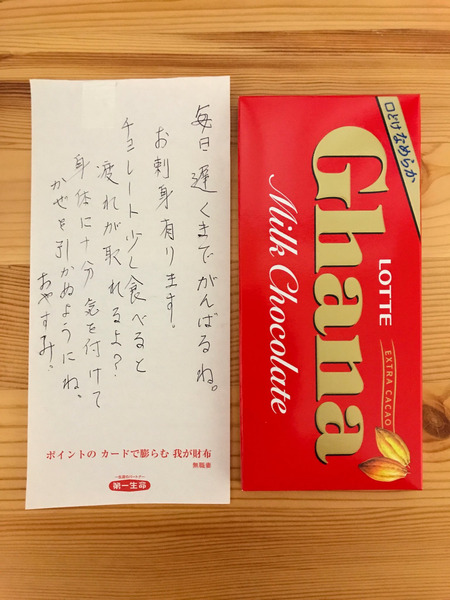 毎日遅くまでがんばるね。
お刺身有ります。
チョコレート少し食べると
疲れが取れるよ?
身体に十分気を付けて
かぜを引かぬようにね、
おやすみ、
ポイントの カードで膨らむ 我が財布
無職妻
一生涯のパートナー
第一生命
口どけなめらか
Ghana
Milk Chocolate
LOTTE
EXTRA CACAO